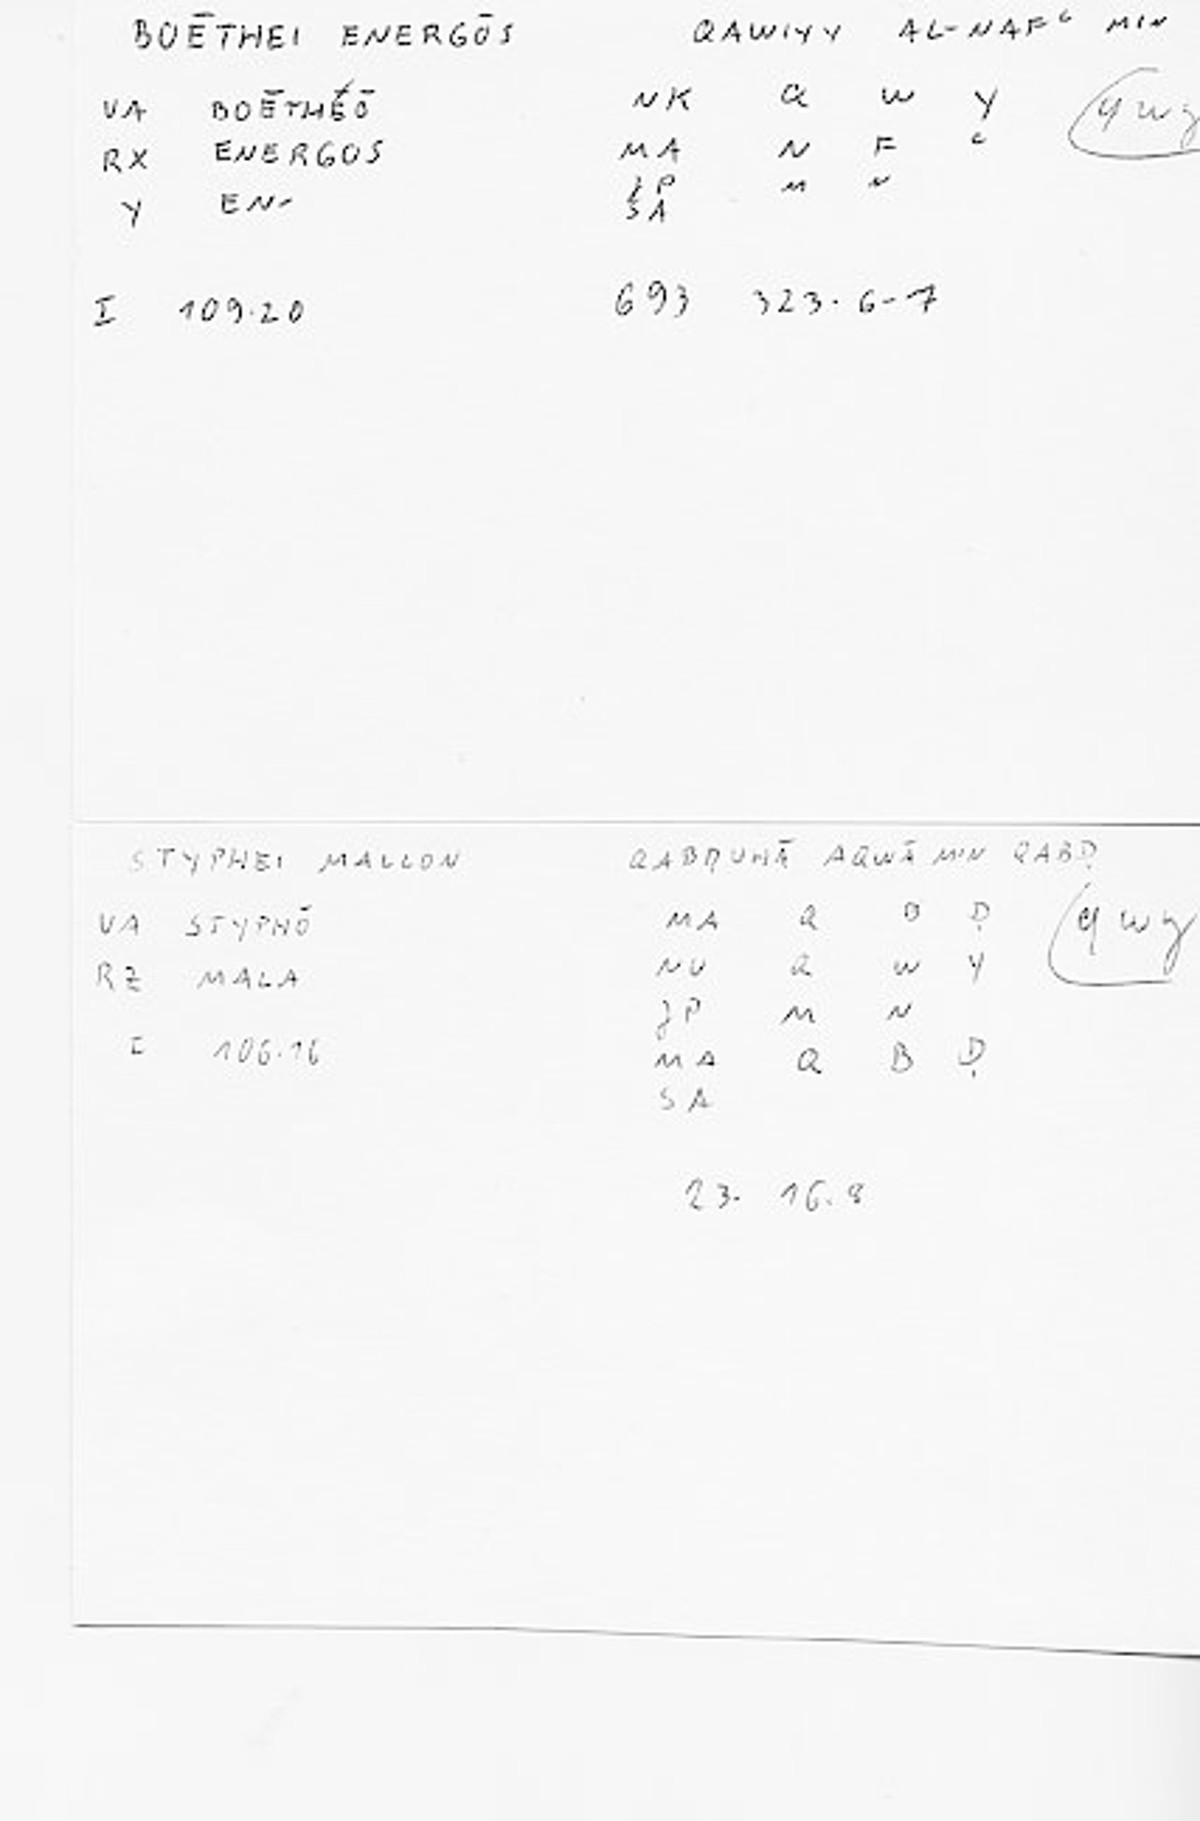 BOĒTHEI ENERGŌS QAWIYY AL-NAFʿ MIN
VA BOĒTHÉŌ NK Q W Y qwy
RX ENERGOS MA N F ʿ
Y EN- JP M N
SA
I 109.20 693 323.6-7
STYPHEI MALLON QABḌUHĀ AQWĀ MIN QABḌ
VA STYPHŌ MA Q B Ḍ qwy
RZ MALA NU Q W Y
JP M N
I 106.16 MA Q B Ḍ
SA
23. 16.8